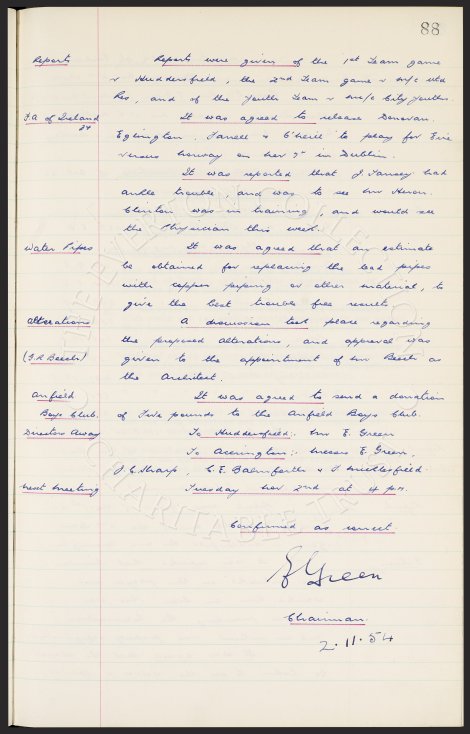 88
Reports Reports were given of the 1st Team game
v Huddersfield, the 2nd Team game v M/c Utd
Res, and of the Youth Team v M/c City Youths.
F.A. of Ireland It was agreed to release Donovan
Eglington, Farrell & O'Neill to play for Eire
versus Norway on Nov 7th in Dublin.
It was reported that J Tansey had
ankle trouble, and was to see Mr Heron.
Clinton was in training, and would see
the Physician this week.
Water Pipes It was agreed that an estimate
be obtained for replacing the lead pipes
with copper piping or other material, to
give the best trouble free results.
Alterations A discussion took place regarding
the proposed alterations, and approval was
(G.R. Beech) given to the appointment of Mr Beech as
the Architect.
Anfield It was agreed to send a donation
Boys Club. of Five pounds to the Anfield Boys Club.
Directors Away To Huddersfield:- Mr E. Green
To Accrington:- Messrs E. Green,
J.C. Sharp, C.E. Balmforth & F. Micklesfield.
Next Meeting Tuesday Nov 2nd at 4 p.m.
Confirmed as correct.
E Green
Chairman.
2.11.54
THE EVERTON COLLECTION
CHARITABLE TRUST